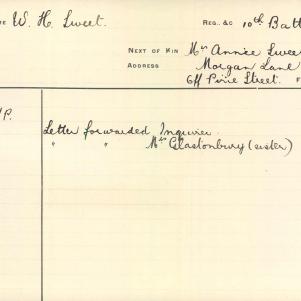 W. H. Sweet. REG. &C 10th Batt
NEXT OF KIN Mrs Annie Swee
ADDRESS Morgan Lane
off Pirie Street.
P.
Letter forwarded Inquirer
" " Mrs Glastonbury (sister)